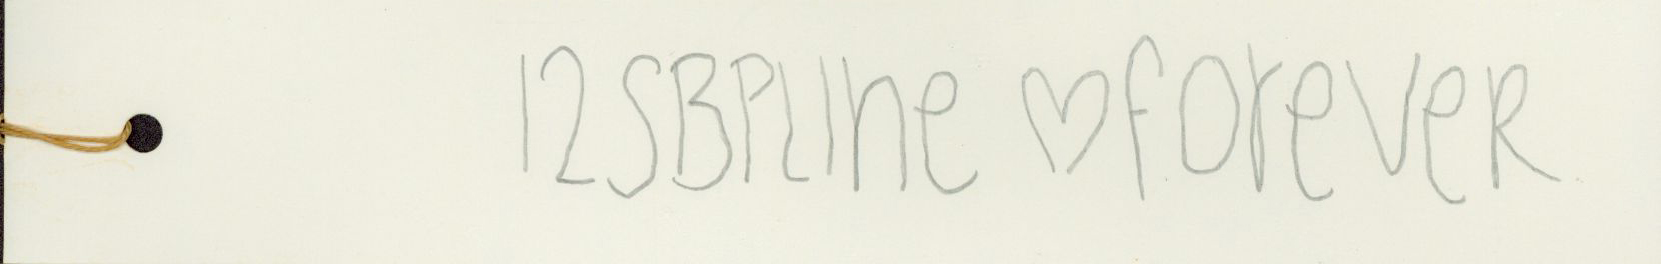 12SBPLIne ♡ forever